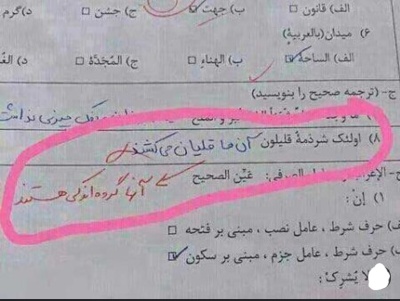 الف) قانون □ ب) جهت □ ج) جشن □ د) گرم
۶) میدان (بالعربیة)
الف) الساحة ☑ ب) الهناء □ ج) المُجَدَّة □ د)
ج- (ترجمه صحیح را بنویسید)
۸) اولئک شرذمة قلیلون آن ها قلیان می کشند
آنها گروه اندکی هستند
عَیِّن الصحیح
۱) إنْ :
حرف شرط ، عامل نصب ، مبنی بر فتحه
ب) حرف شرط ، عامل جزم ، مبنی بر سکون ☑
لا یُشرِکْ :